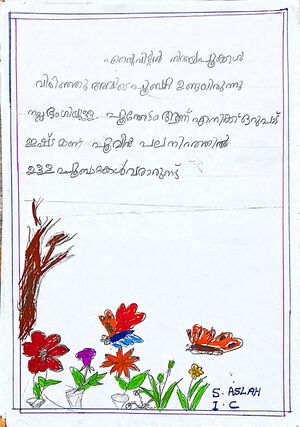 എന്റെവീട്ടിൽ നിറയെപൂക്കൾ
വിരിഞ്ഞു അവിടെ പൂമ്പാറ്റ ഉണ്ടായിരുന്നു
നല്ല ഭംഗിയുള്ള പൂന്തോട്ടം ആണ് എനിക്ക് ഒരുപാട്
ഇഷ്ട മാണ് പൂവിൽ പലനിറത്തിൽ
ഉള്ള പൂമ്പാറ്റകൾവരാറുണ്ട്
S. ASLAH
I. C